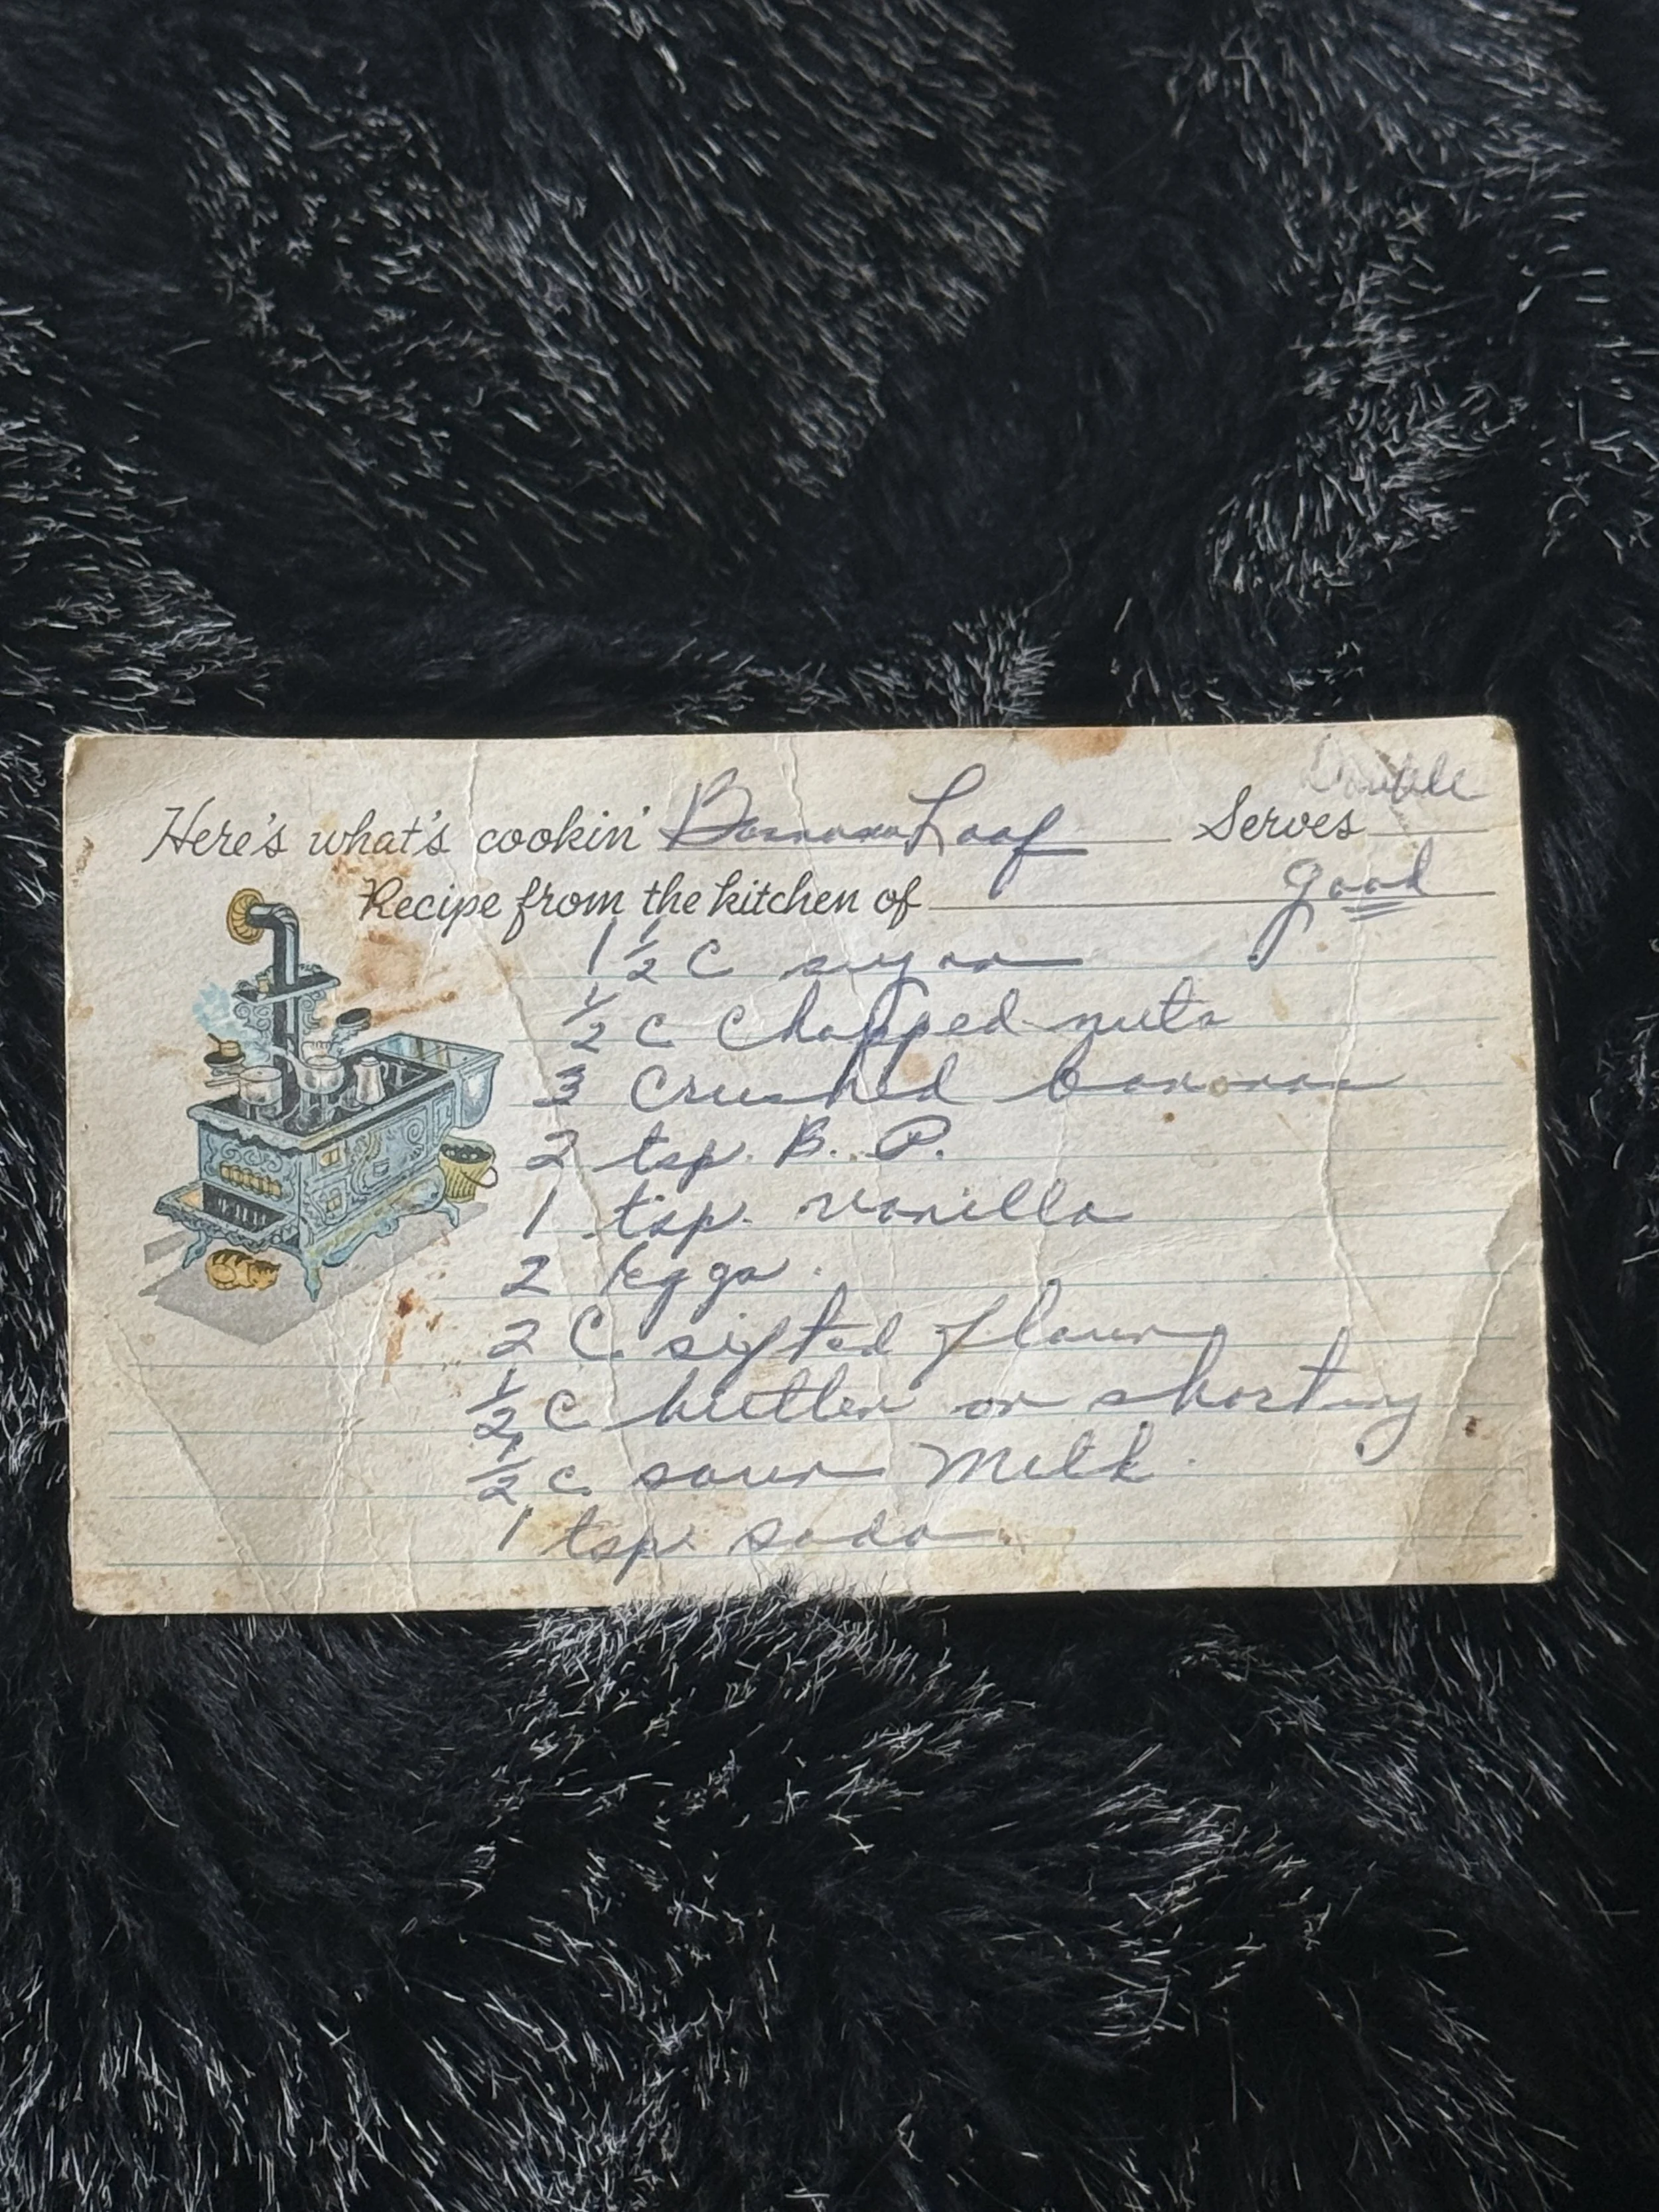 Double
Here's what's cookin' Banana Loaf Serves
Recipe from the kitchen of good
1 1/2 C sugar
1/2 C Chopped nuts
3 Crushed bananas
2 tsp. B. P.
1 tsp. vanilla
2 eggs.
2 C. sifted flour
1/2 C. butter or shorting
1/2 c. sour Milk.
1 tsp. soda